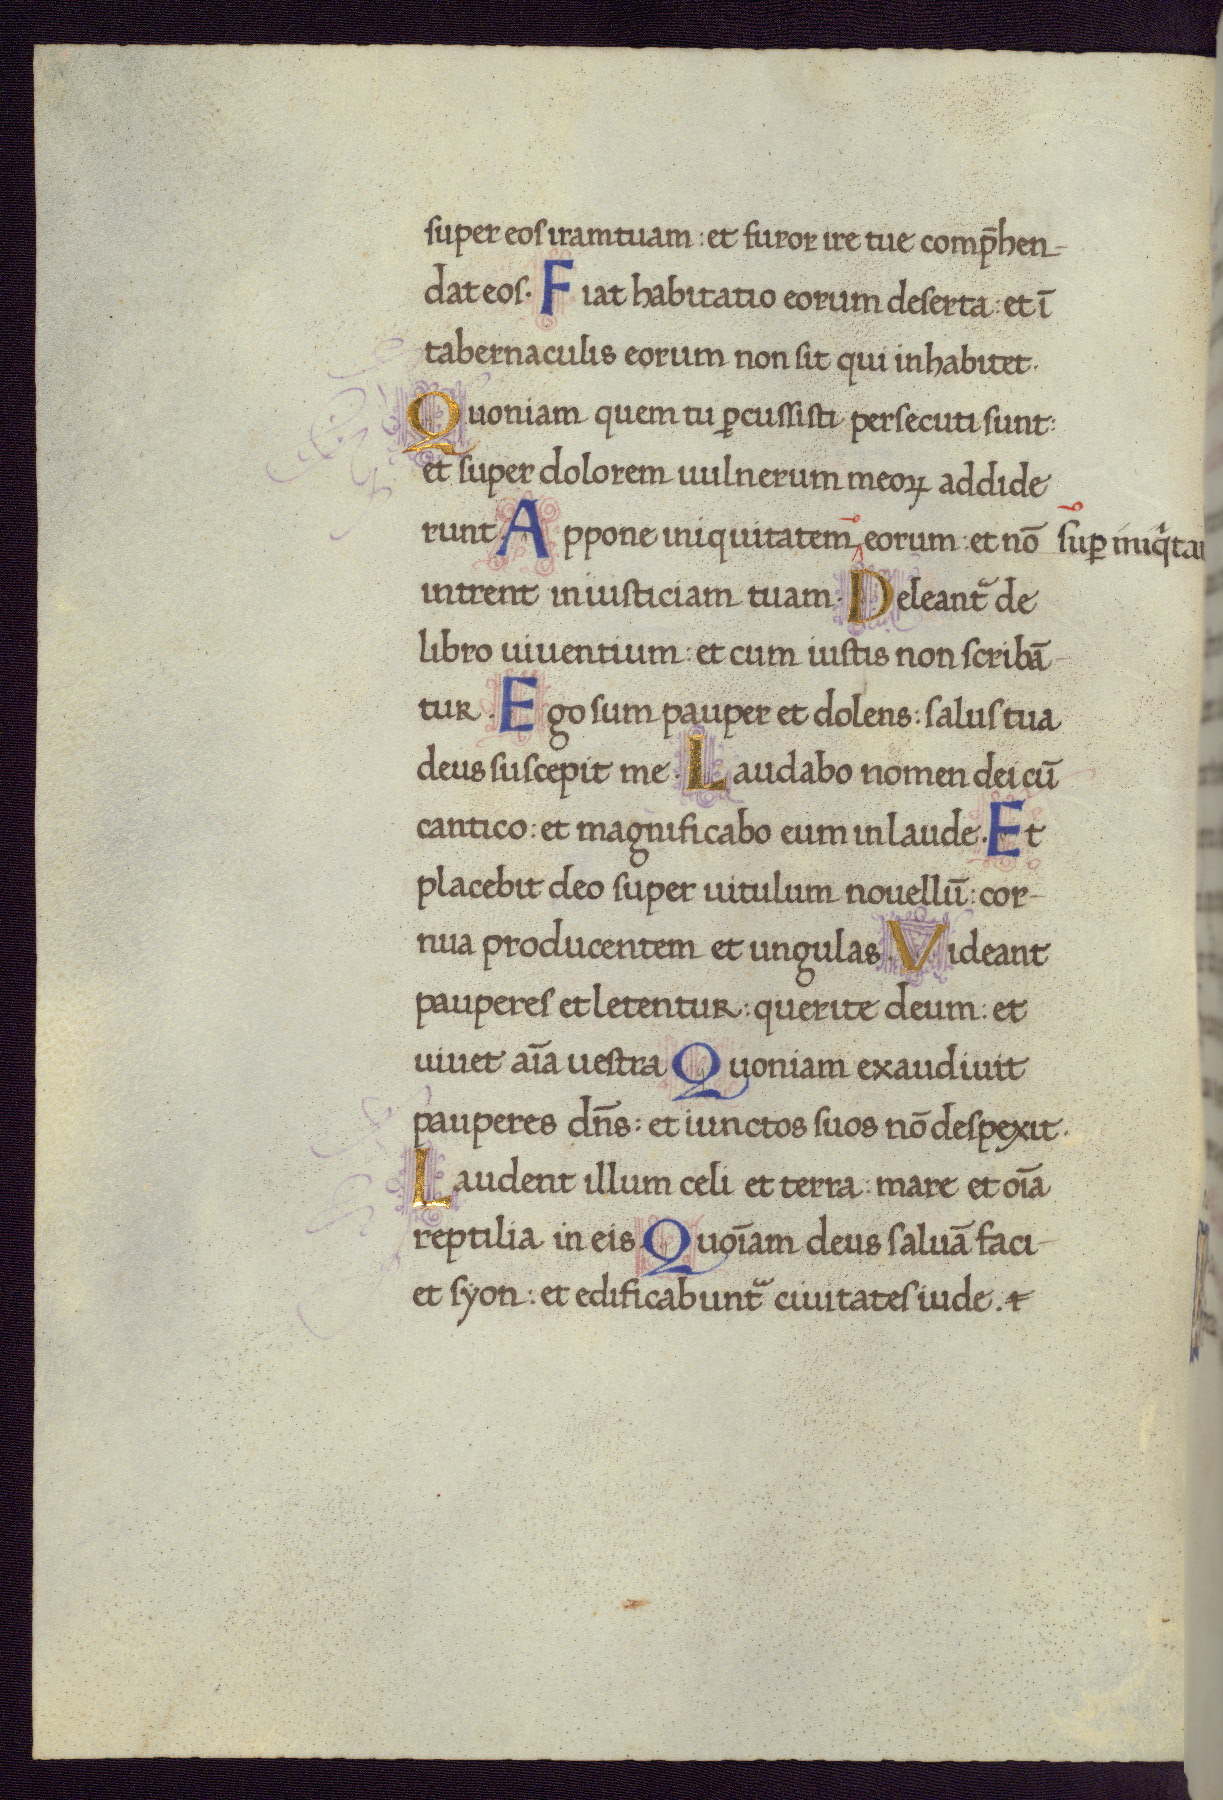 super eos iram tuam : et furor ire tue comp̄hen-
dat eos. Fiat habitatio eorum deserta : et ī
tabernaculis eorum non sit qui inhabitet.
Quoniam quem tu ꝑcussisti persecuti sunt:
et super dolorem uulnerum meoꝝ addide
runt. Appone iniquitatem eorum : et nō suꝑ
intrent in iusticiam tuam. Deleant᷑ de
libro uiuentium : et cum iustis non scribā-
tur. Ego sum pauper et dolens : salus tua
deus suscepit me. Laudabo nomen dei cū
cantico : et magnificabo eum in laude. Et
placebit deo super uitulum nouellū : cor-
nua producentem et ungulas. Videant
pauperes et letentur : querite deum : et
uiuet aīa uestra Quoniam exaudiuit
pauperes dn̄s : et iunctos suos nō despexit.
Laudent illum celi et terra : mare et oīa
reptilia in eis. Quoīam deus saluā faci-
et syon : et edificabunt᷑ ciuitates iude. ⁊